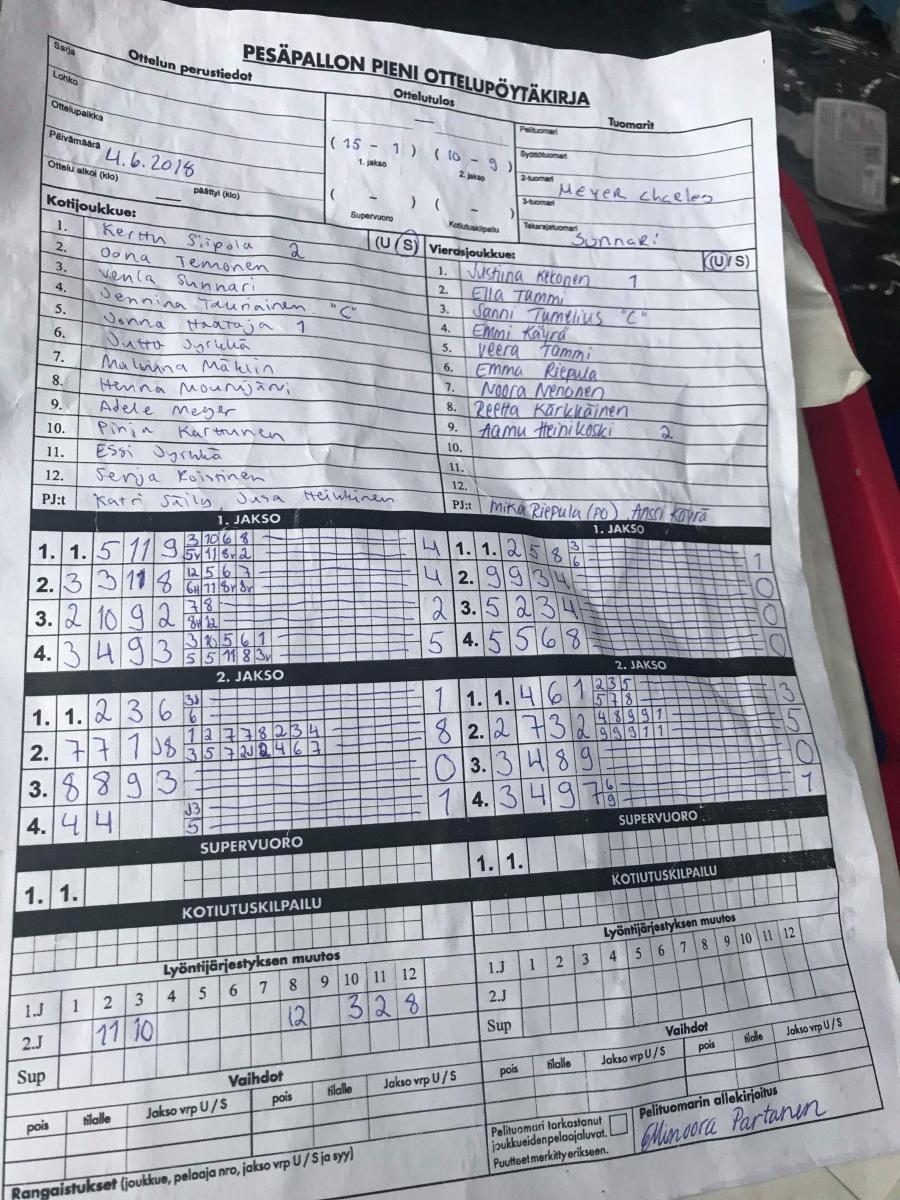 PESÄPALLON PIENI OTTELUPÖYTÄKIRJA
Sarja
Ottelun perustiedot
Ottelutulos
Tuomarit
Lohko
Ottelupaikka
Päivämäärä 4.6.2018
Ottelu alkoi (klo) päättyi (klo)
( 15 - 1 ) ( 10 - 9 )
1. jakso 2. jakso
( - ) ( - )
Supervuoro Kotiutuskilpailu
Pelituomari
Syöttötuomari
2-tuomari Meyer Charles
3-tuomari
Takarajatuomari Sunnari
Kotijoukkue: (U/S)
1. Kerttu Siipola 2
2. Oona Temonen
3. Venla Sunnari
4. Jennina Tauriainen "C"
5. Jonna Haataja 1
6. Jutta Jyrkkä
7. Malviina Mäklin
8. Henna Mourujärvi
9. Adele Meyer
10. Pinja Karttunen
11. Essi Jyrkkä
12. Senja Roistinen
PJ:t Katri Säily, Jusa Heikkinen
Vierasjoukkue: (U/S)
1. Justiina Ketonen 1
2. Ella Tammi
3. Sanni Tumelius "C"
4. Emmi Käyrä
5. Veera Tammi
6. Emma Riepula
7. Noora Nenonen
8. Reetta Kärkkäinen
9. Aamu Heinikoski 2
10.
11.
12.
PJ:t Mika Riepula (PO), Anssi Käyrä
1. JAKSO
1. 1. 5 11 9 3 10 6 8 4
5v 11 8v 2
2. 3 3 11 8 12 5 6 7 4
6H 11 8v 8v
3. 2 10 9 2 7 8 2
8H 12
4. 3 4 9 3 3 10 5 6 1 5
5 5 11 8 3v
1. JAKSO
1. 1. 2 5 8 3 1
6
2. 9 9 3 4 0
3. 5 2 3 4 0
4. 5 5 6 8 0
2. JAKSO
1. 1. 2 3 6 3J 1
6
2. 7 7 1 J8 1 2 7 7 8 2 3 4 8
3 5 7 2J 2 4 6 7
3. 8 8 9 3 0
4. 4 4 J3 1
5
2. JAKSO
1. 1. 4 6 1 2 3 5 3
5 7 8
2. 2 7 3 2 4 8 9 9 1 5
9 9 9 1 1
3. 3 4 8 9 0
4. 3 4 9 7 6 1
9
SUPERVUORO
1. 1.
SUPERVUORO
1. 1.
KOTIUTUSKILPAILU
KOTIUTUSKILPAILU
Lyöntijärjestyksen muutos
1.J 1 2 3 4 5 6 7 8 9 10 11 12
2.J 11 10 12 3 2 8
Sup
Lyöntijärjestyksen muutos
1.J 1 2 3 4 5 6 7 8 9 10 11 12
2.J
Sup
Vaihdot
pois tilalle Jakso vrp U / S pois tilalle Jakso vrp U / S
Vaihdot
pois tilalle Jakso vrp U / S pois tilalle Jakso vrp U / S
Rangaistukset (joukkue, pelaaja nro, jakso vrp U / S ja syy)
Pelituomari tarkastanut
joukkueiden pelaajaluvat.
Puutteet merkitty erikseen.
Pelituomarin allekirjoitus
Minoora Partanen